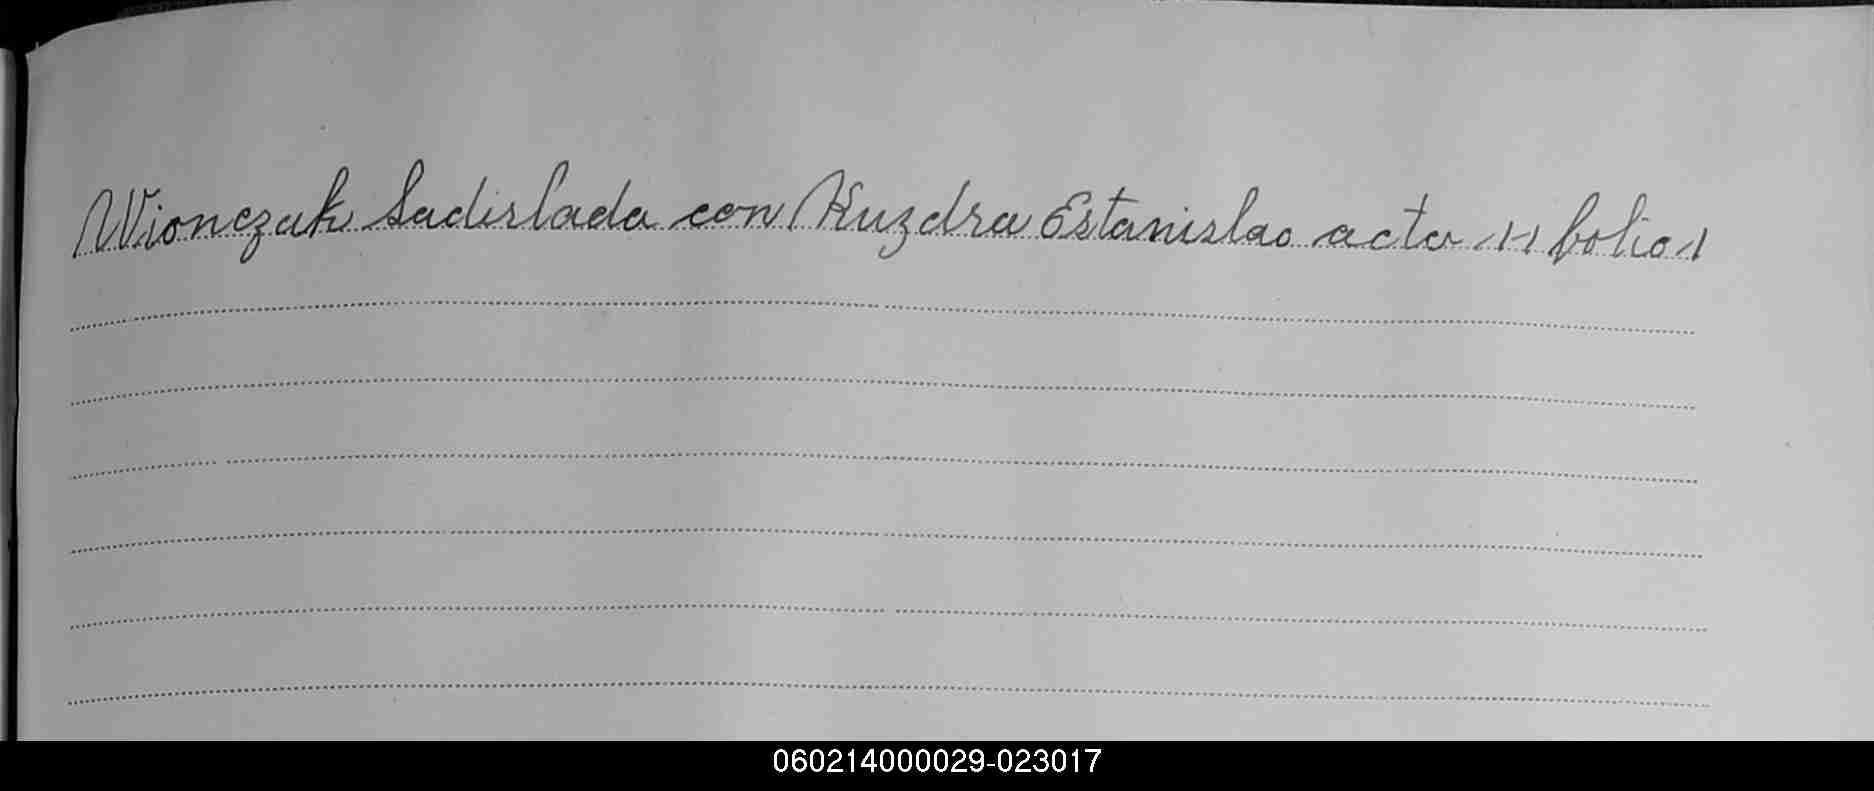 Wionczak Ladislada con Kuzdra Estanislao acta 11 folio 1
060214000029-023017